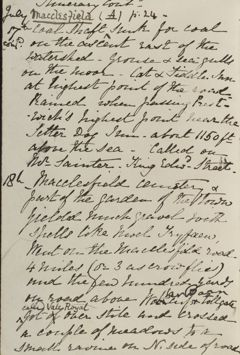 Itinerary cont.
July Macclesfield (A) p. 24 -
17th Coal Shaft sunk for coal
cont. on the ascent east of the
watershed - Grouse & Sea gulls
on the moor - Cat & Fiddle Inn
at highest point of the road
Rained when passing
highest point near the
Setter Dog Inn - about 1150 ft
above the sea - Called on
Mr Sainter - King Edwd Street.
18th Macclesfield cemetery &
part of the garden of the town
yield much gravel with
shells like Moel Tryfaen,
Went on the Macclesfield road
4 miles (or 3 as crow flies)
and a few hundred yards
on road above
called Vale Royal
Got over stile and crossed
a couple of meadows to a
small ravine on N. side of road